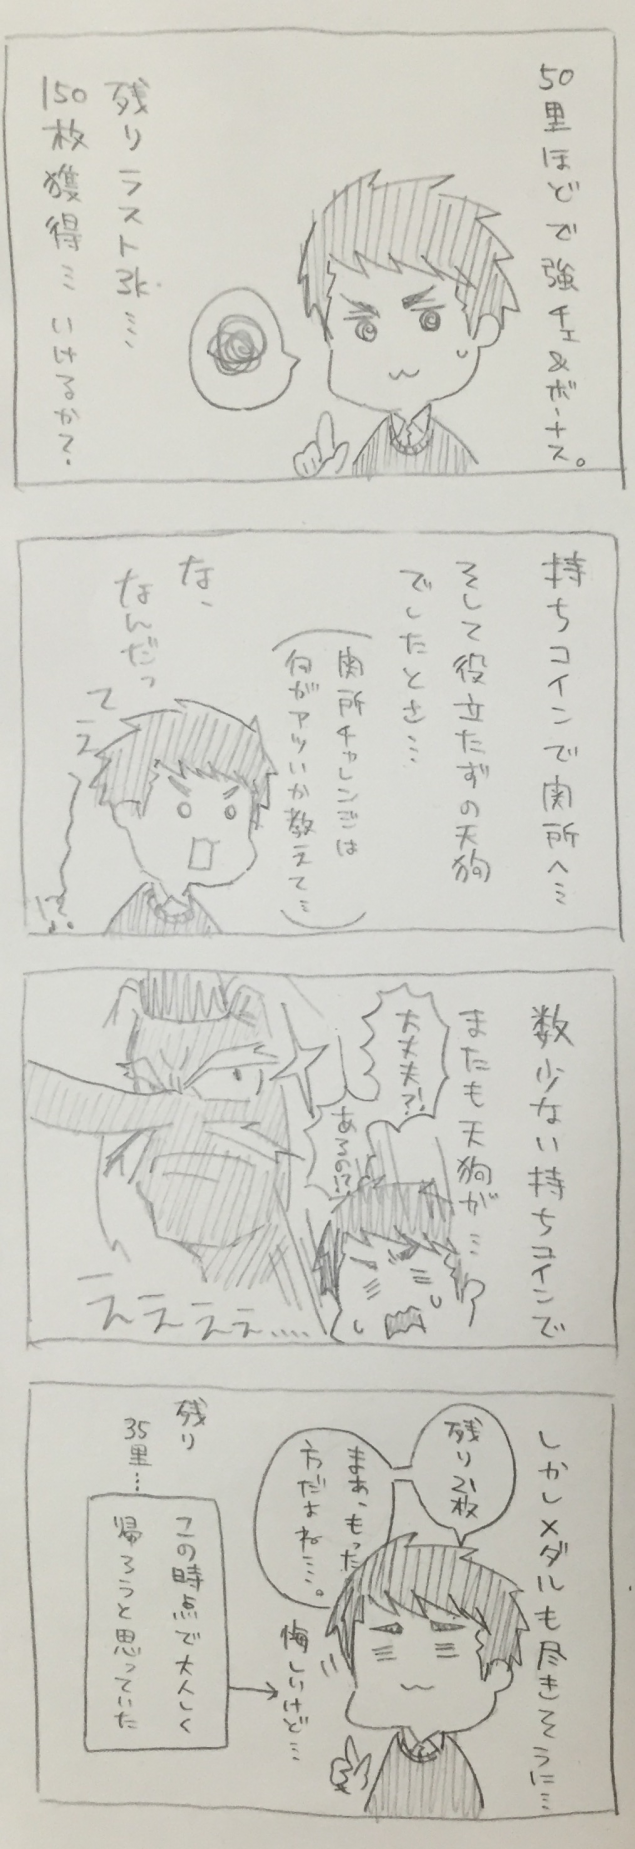 50里ほどで強チェ&ボーナス。
残りラスト3k…
150枚獲得… いけるか?
持ちコインで関所へ…
そして役立たずの天狗
でしたとさ…
(関所チャレンジは
何がアツいか教えて…)
な、
なんだっ
てえ
!?
数少ない持ちコインで
またも天狗が…
大丈夫?!
あるの!?
ええええ....
しかしメダルも尽きそうに…
残り21枚
まあ、もった
方だよね…。
悔しいけど…
残り
35里…
この時点で大人しく
帰ろうと思っていた